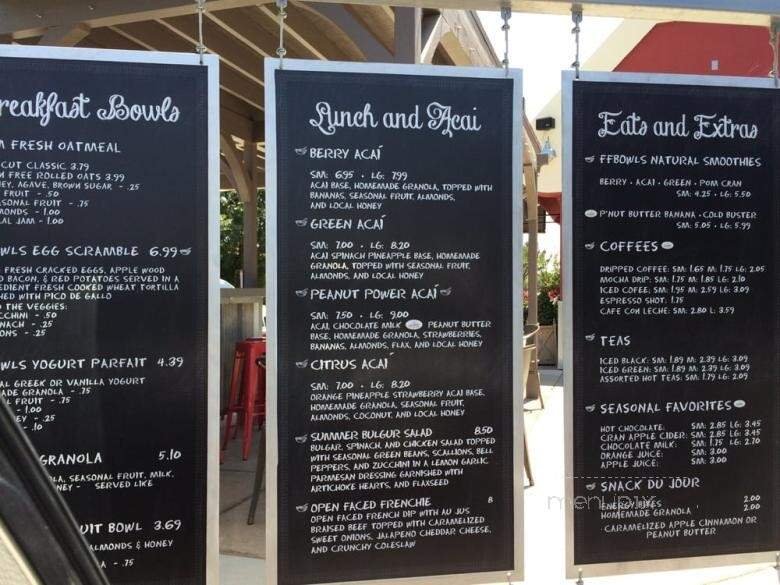 reakfast Bowls
FRESH OATMEAL
CUT CLASSIC 3.79
FREE ROLLED OATS 3.99
AGAVE, BROWN SUGAR - .25
FRUIT - .50
SONAL FRUIT - .75
MONDS - 1.00
JAM - 1.00
OWLS EGG SCRAMBLE 6.99
FRESH CRACKED EGGS, APPLE WOOD
BACON, & RED POTATOES SERVED IN A
EDIENT FRESH COOKED WHEAT TORTILLA
HED WITH PICO DE GALLO
THE VEGGIES:
CCHINI - .50
NACH - .25
ONS - .25
OWLS YOGURT PARFAIT 4.39
AL GREEK OR VANILLA YOGURT
MADE GRANOLA - .75
FRUIT - .75
- 1.00
- .10
GRANOLA 5.10
LA, SEASONAL FRUIT, MILK,
NEY - SERVED LIKE
UIT BOWL 3.69
ALMONDS & HONEY
LA - .75
Lunch and Acai
BERRY ACAÍ
SM: 6.95 · LG: 7.99
ACAI BASE, HOMEMADE GRANOLA, TOPPED WITH
BANANAS, SEASONAL FRUIT, ALMONDS,
AND LOCAL HONEY
GREEN ACAÍ
SM: 7.00 · LG: 8.20
ACAI SPINACH PINEAPPLE BASE, HOMEMADE
GRANOLA, TOPPED WITH SEASONAL FRUIT,
ALMONDS, AND LOCAL HONEY
PEANUT POWER ACAÍ
SM: 7.50 · LG: 9.00
ACAI, CHOCOLATE MILK PEANUT BUTTER
BASE, HOMEMADE GRANOLA, STRAWBERRIES,
BANANAS, ALMONDS, FLAX, AND LOCAL HONEY
CITRUS ACAÍ
SM: 7.00 · LG: 8.20
ORANGE PINEAPPLE STRAWBERRY ACAI BASE,
HOMEMADE GRANOLA, SEASONAL FRUIT,
ALMONDS, COCONUT, AND LOCAL HONEY
SUMMER BULGUR SALAD 8.50
BULGAR, SPINACH, AND CHICKEN SALAD TOPPED
WITH SEASONAL GREEN BEANS, SCALLIONS, BELL
PEPPERS, AND ZUCCHINI IN A LEMON GARLIC
PARMESAN DRESSING GARNISHED WITH
ARTICHOKE HEARTS, AND FLAXSEED
OPEN FACED FRENCHIE 8
OPEN FACED FRENCH DIP WITH AU JUS
BRAISED BEEF TOPPED WITH CARAMELIZED
SWEET ONIONS, JALAPENO CHEDDAR CHEESE,
AND CRUNCHY COLESLAW
Eats and Extras
FFBOWLS NATURAL SMOOTHIES
BERRY · ACAI · GREEN · POM CRAN
SM: 4.25 · LG: 5.50
P'NUT BUTTER BANANA · COLD BUSTER
SM: 5.05 · LG: 5.99
COFFEES
DRIPPED COFFEE: SM: 1.65 M: 1.75 LG: 2.05
MOCHA DRIP: SM: 1.75 M: 1.85 LG: 2.10
ICED COFFEE: SM: 1.95 M: 2.59 LG: 3.09
ESPRESSO SHOT: 1.75
CAFE CON LECHE: SM: 2.80 L: 3.59
TEAS
ICED BLACK: SM: 1.89 M: 2.39 LG: 3.09
ICED GREEN: SM: 1.89 M: 2.39 LG: 3.09
ASSORTED HOT TEAS: SM: 1.79 LG: 2.09
SEASONAL FAVORITES
HOT CHOCOLATE: SM: 2.85 LG: 3.45
CRAN APPLE CIDER: SM: 2.85 LG: 3.45
CHOCOLATE MILK: SM: 1.75 LG: 2.70
ORANGE JUICE: SM: 3.00
APPLE JUICE: SM: 3.00
SNACK DU JOUR
ENERGY BITES 2.00
HOMEMADE GRANOLA 2.00
CARAMELIZED APPLE CINNAMON OR
PEANUT BUTTER
menupix